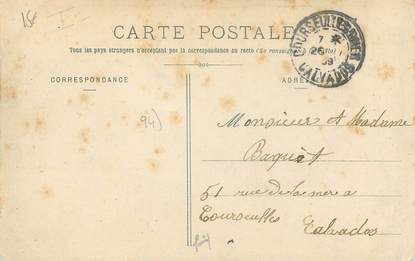 15€
CARTE POSTALE
Tous les pays étrangers n'acceptent pas la correspondance au recto (Se renseigner
COURSEULLES-S-MER
7 *
26
09
CALVADOS
CORRESPONDANCE
ADRE
94)
Monsieur et Madame
Baquet
61 rue de la mer a
Courseulles
Calvados